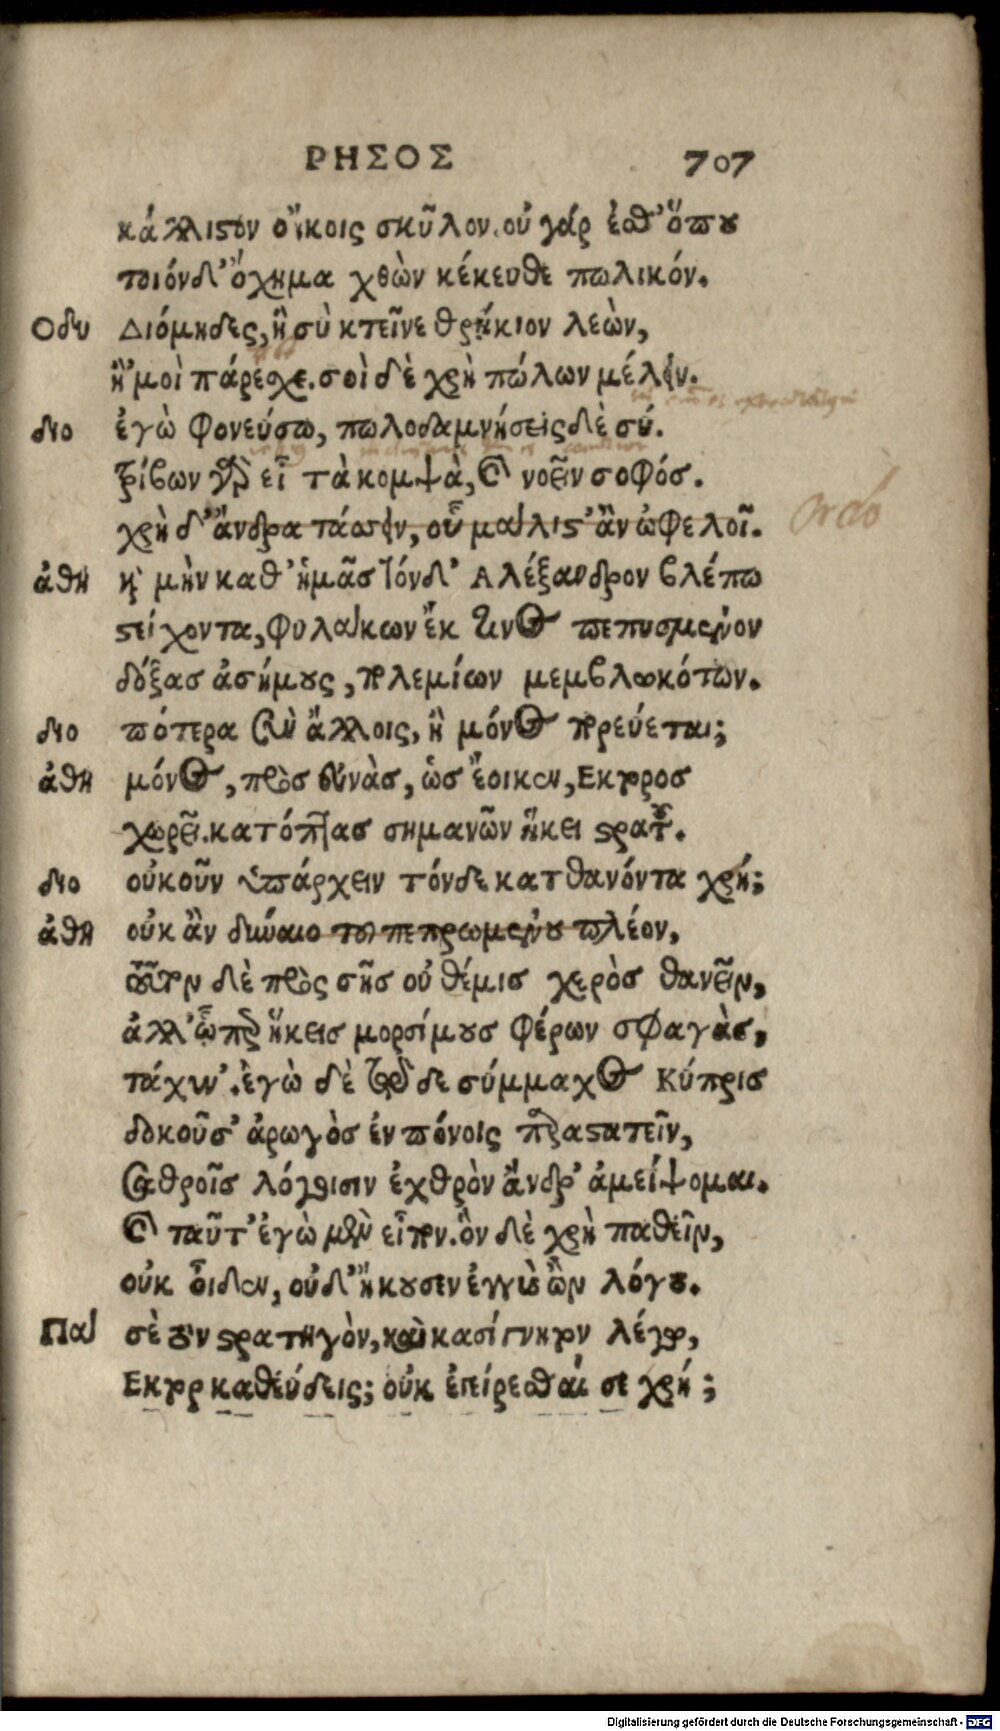 ΡΗΣΟΣ 707
κάλλιστον οἴκοις σκῦλον. οὐ γάρ ἐσθ' ὅπου
τοιόνδ' ὄχημα χθὼν κέκευθε πωλικόν.
Οδυ Διόμηδες, ἢ σὺ κτεῖνε θρῄκιον λεὼν,
ἢ 'μοὶ πάρεχε. σοὶ δὲ χρὴ πώλων μέλειν.
διο ἐγὼ φονεύσω, πωλοδαμνήσεις δὲ σύ.
τρίβων γὰρ εἶ τὰ κομψὰ, καὶ νοεῖν σοφόσ.
χρὴ δ' ἄνδρα τάσσειν, οὗ μάλιστ' ἂν ὠφελοῖ.
Ordo
ἀθη καὶ μὴν καθ' ἡμᾶσ τόνδ' Αλέξανδρον βλέπω
στείχοντα, φυλάκων ἔκ τινος πεπυσμένον
δόξασ ἀσήμους, πολεμίων μεμβλωκότων.
διο πότερα σὺν ἄλλοις, ἢ μόνος πορεύεται;
ἀθη μόνος, πρὸσ εὐνὰσ, ὡσ ἔοικεν, Εκτοροσ
χωρεῖ. κατόπτασ σημανῶν ἥκει στρατοῦ.
διο οὐκοῦν ὑπάρχειν τόνδε κατθανόντα χρή;
ἀθη οὐκ ἂν δύναιο τοῦ πεπρωμένου πλέον,
τοῦτον δὲ πρὸς σῆσ οὐ θέμισ χερὸσ θανεῖν,
ἀλλ' ᾧπερ ἥκεισ μορσίμουσ φέρων σφαγὰσ,
τάχυν'. ἐγὼ δὲ τῷδε σύμμαχος Κύπρισ
δοκοῦσ' ἀρωγὸσ ἐν πόνοις παραστατεῖν,
σαθροῖσ λόγοισιν ἐχθρὸν ἄνδρ' ἀμείψομαι.
καὶ ταῦτ' ἐγὼ μὲν εἶπον. ὃν δὲ χρὴ παθεῖν,
οὐκ οἶδεν, οὐδ' ἤκουσεν ἐγγὺς ὢν λόγου.
Παλ σὲ τὸν στρατηγὸν, καὶ κασίγνητον λέγω,
Εκτορ καθεύδεις; οὐκ ἐπείρεσθαί σε χρή;
Digitalisierung gefördert durch die Deutsche Forschungsgemeinschaft - DFG